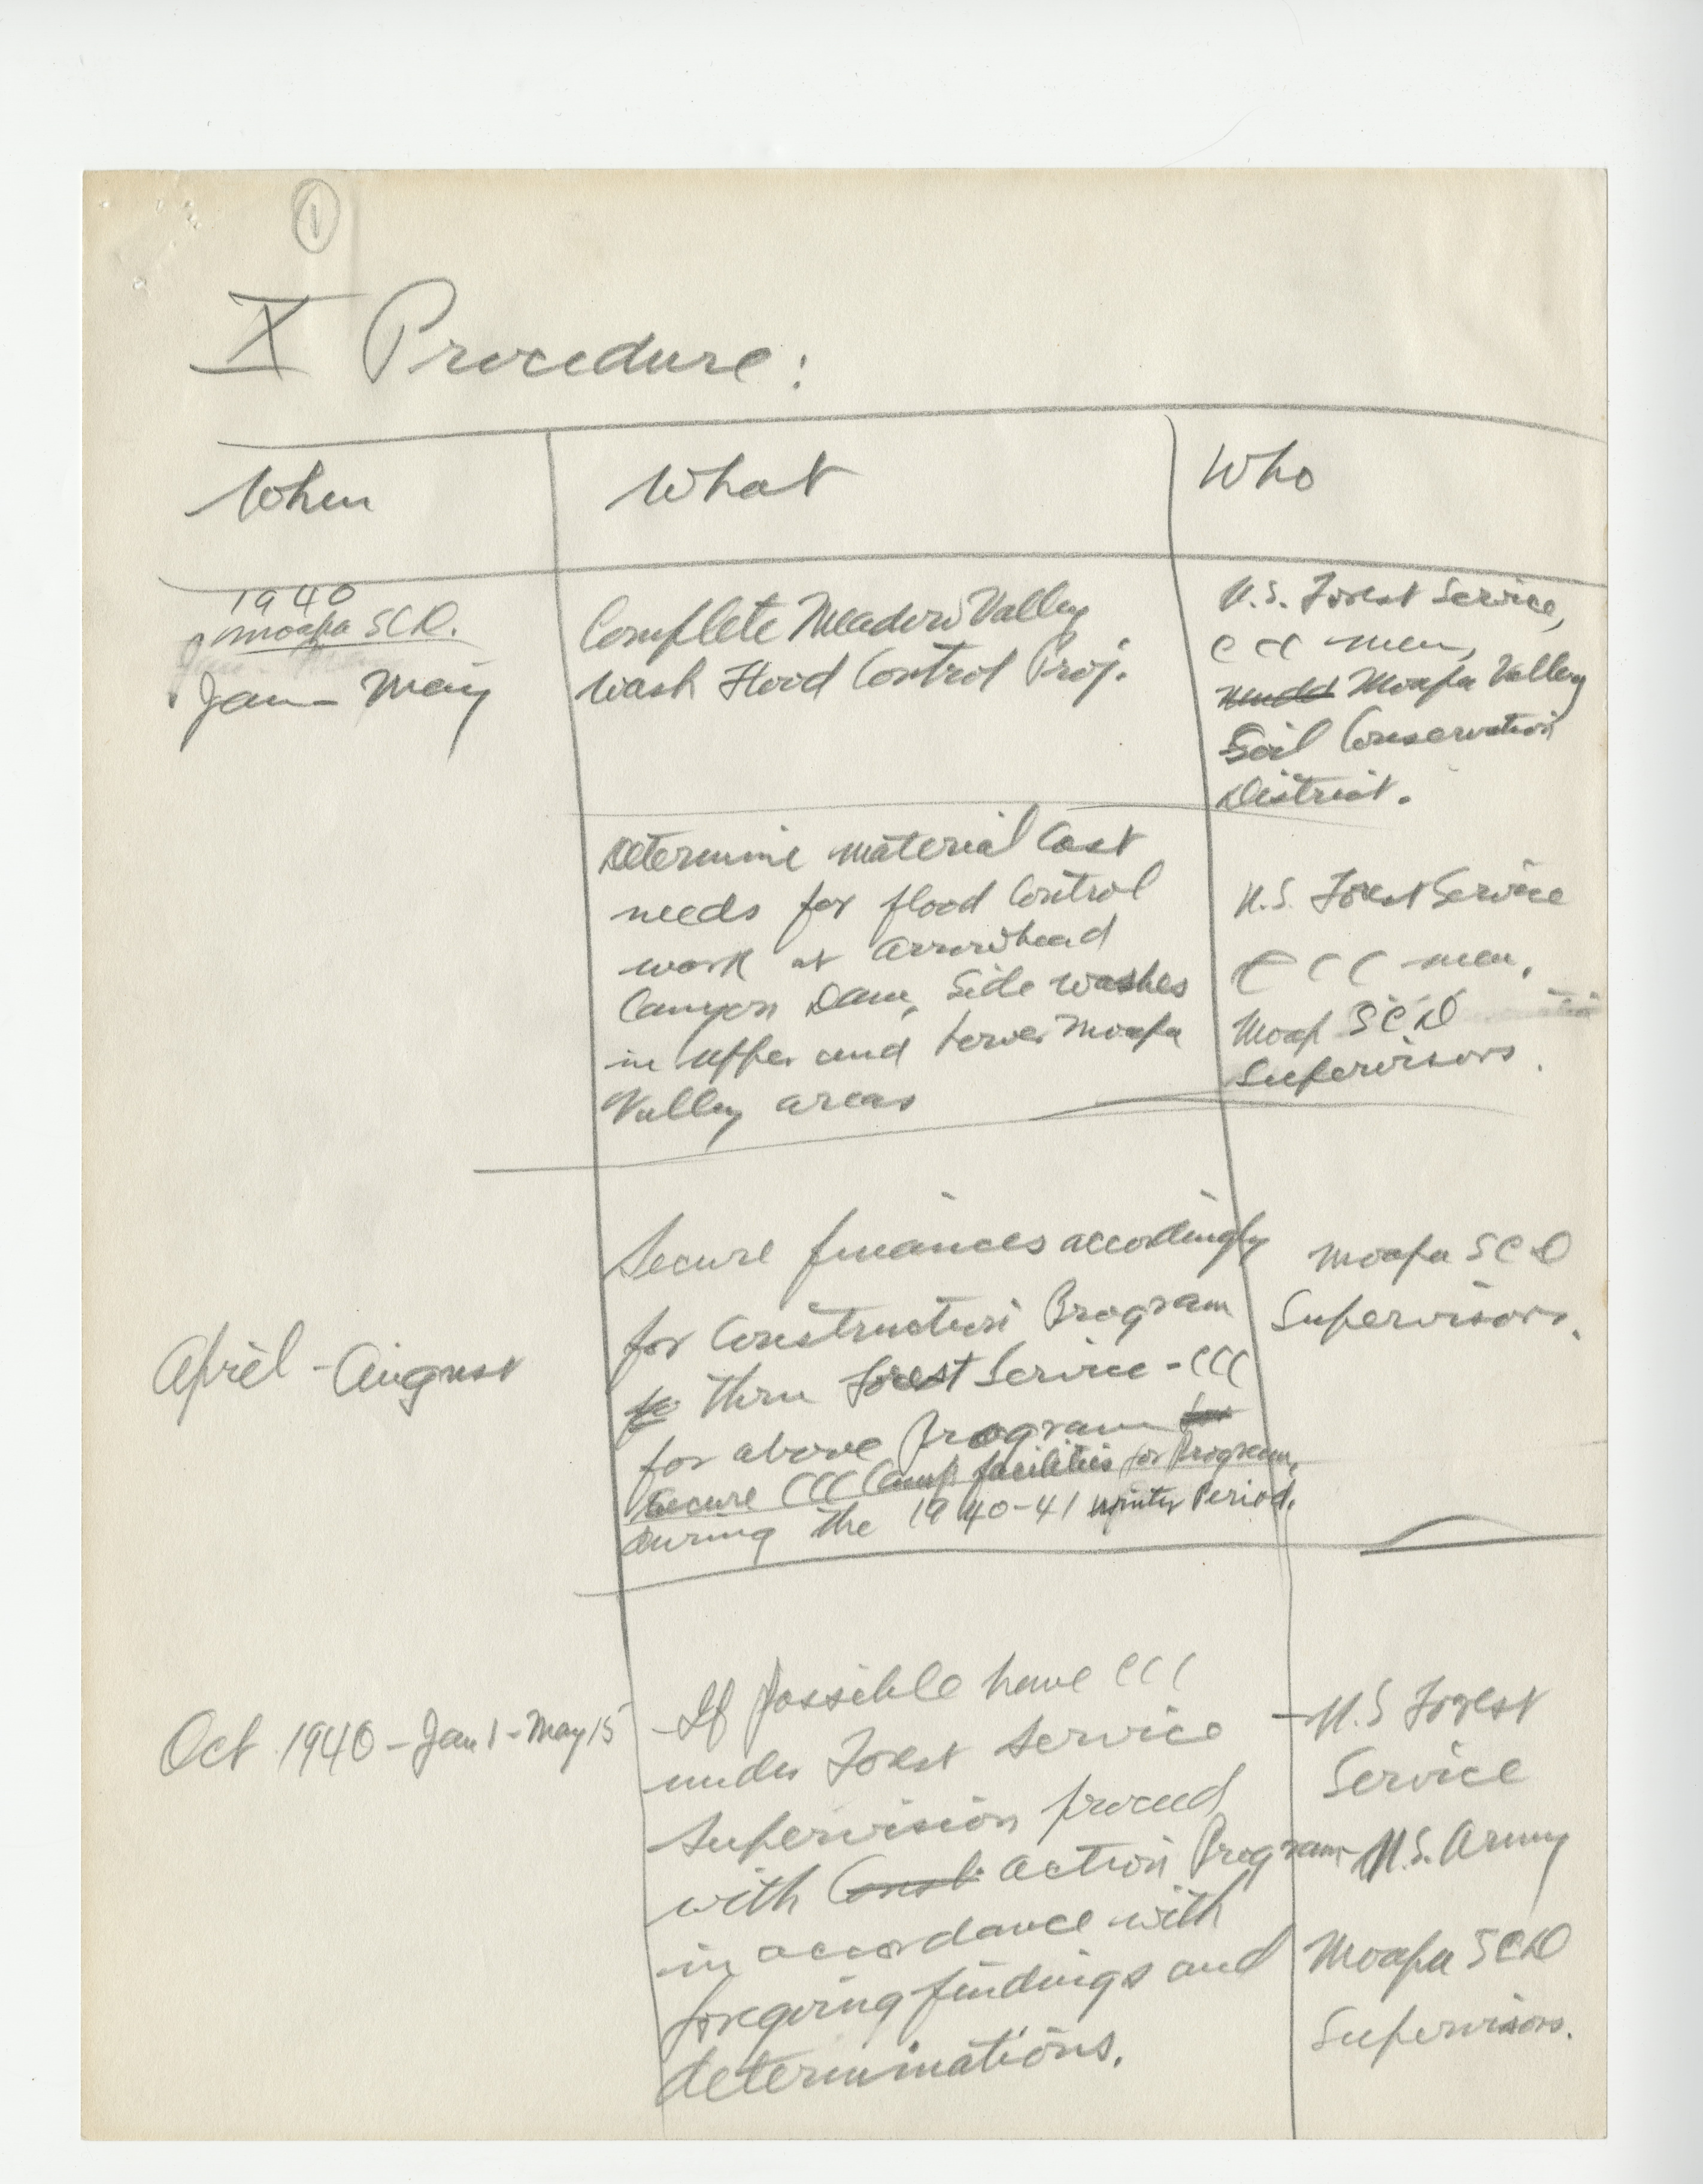 1
X Procedure:
When
What
Who
1940
Moapa SCD.
Jan - May
Complete Meadow Valley
Wash Flood Control Proj.
U.S. Forest Service,
CCC men,
Moapa Valley
Soil Conservation
District.
Determine material Cost
needs for flood Control
work at Arrowhead
Canyon Dam, Side washes
in upper and lower Moapa
Valley areas
U.S. Forest Service
CCC men.
Moap SCD
Supervisors.
April - August
Secure finances accordingly
for Construction Program
to thru Forest Service - CCC
for above Program for
Secure CCC Camp facilities for Program,
during the 1940-41 winter Period.
Moapa SCD
Supervisors.
Oct 1940 - Jan 1 - May 15
If possible have CCC
under Forest Service
Supervision proceed
with Const. action Program
in accordance with
foregoing findings and
determinations.
- U.S Forest
Service
- U.S. Army
Moapa SCD
Supervisors.